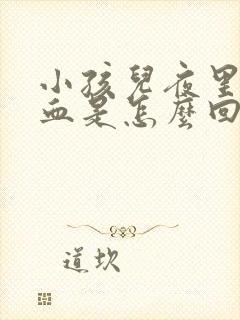 小孩兒夜里
血是怎麼回
道坎